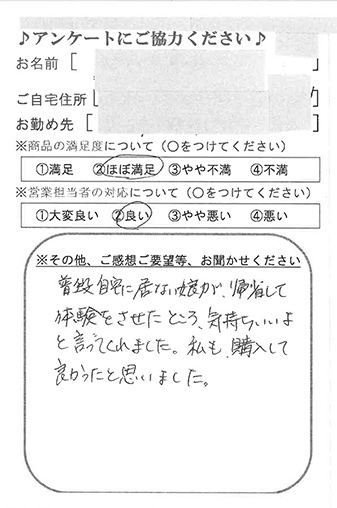 ♪アンケートにご協力ください♪
お名前［　　　］
ご自宅住所［
お勤め先［
※商品の満足度について（○をつけてください）
①満足　②ほぼ満足　③やや不満　④不満
※営業担当者の対応について（○をつけてください）
①大変良い　②良い　③やや悪い　④悪い
※その他、ご感想ご要望等、お聞かせください
普段自宅に居ない娘が、帰省して
体験をさせたところ、気持ちいいよ
と言ってくれました。私も、購入して
良かったと思いました。